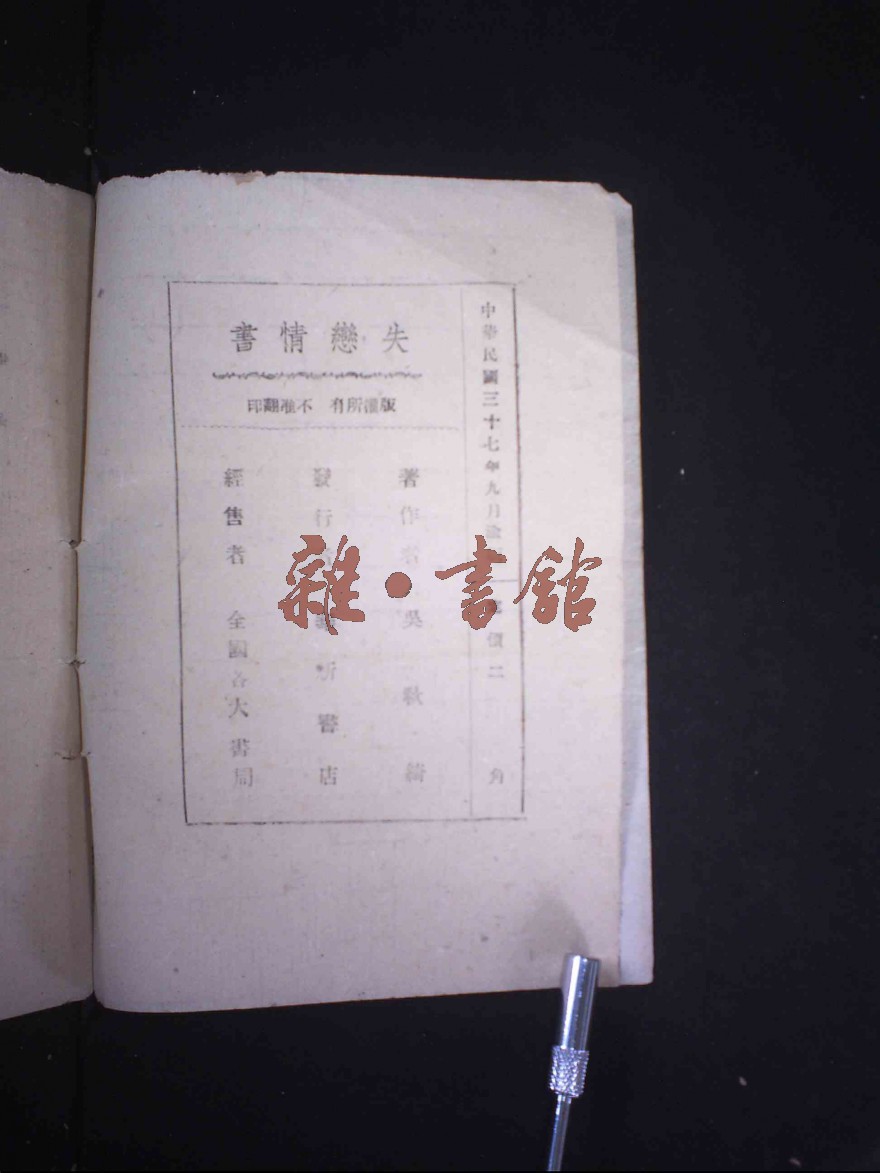 中華民國三十七年九月
價二角
失戀情書
版權所有 不准翻印
著作者 吳秋綺
發行 新書店
經售者 全國各大書局
雜·書館